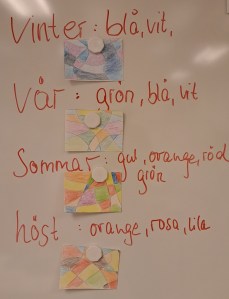 Vinter: blå, vit,
Vår: grön, blå, vit
Sommar: gul, orange, röd
grön
höst: orange, rosa, lila